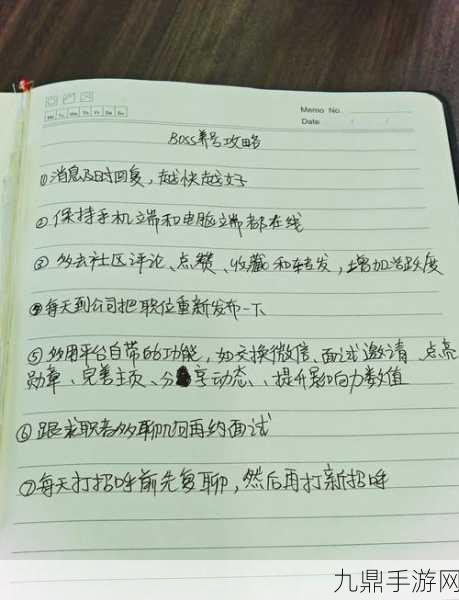 Memo No.
Mo Tu We Th Fr Sa Su
Date / /
Boss养号攻略
①消息及时回复，越快越好
②保持手机端和电脑端都在线
③多去社区评论、点赞、收藏和转发，增加活跃度
④每天到公司把职位重新发布一下
⑤多用平台自带的功能，如交换微信、面试邀请、点亮
勋章、完善主页、分享动态、提升影响力数值
⑥跟求职者多聊几句再约面试
⑦每天打招呼前先复聊，然后再打新招呼
九鼎手游网